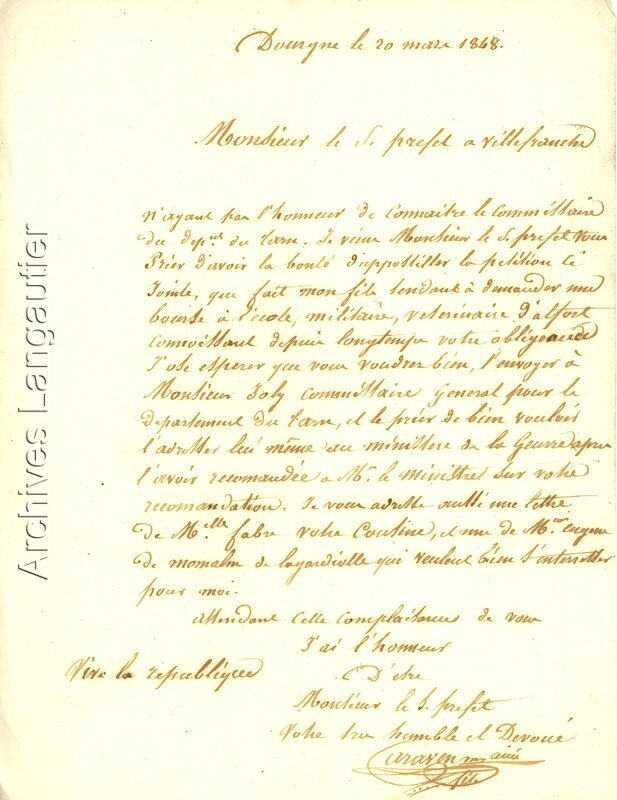 Dourgne le 20 mars 1848.
Monsieur le S. prefet a villefranche
n'ayant pas l'honneur de Connaitre le Committaire
du dep.al du tarn. Je viens Monsieur le S. prefet vous
Prier d'avoir la bonté d'appostiller la petition Ci
Jointe, que fait mon fils tendant à demander une
bourse à l'école, militaire, veterinaire d'alfort
Connoissant depuis longtemps votre obligence
J'ose esperer que vous voudrez bien, l'envoyer à
Monsieur Joly Committaire General pour le
departement du tarn, et le prier de bien vouloir
l'adresser lui même au ministere de la Guerre apres
l'avoir recomandée a Mr. le ministre sur votre
recomandation. Je vous adresse aussi une lettre
de M.elle fabre votre Cousine, et une de Mr. eugene
de lagardiolle qui veulent bien s'interesser
pour moi.
attendant cette complaisance de vous
J'ai l'honneur
D'etre
Vive la republique
Monsieur le S. prefet
Votre tres humble et Devoué
ainé
fils
Archives Langautier